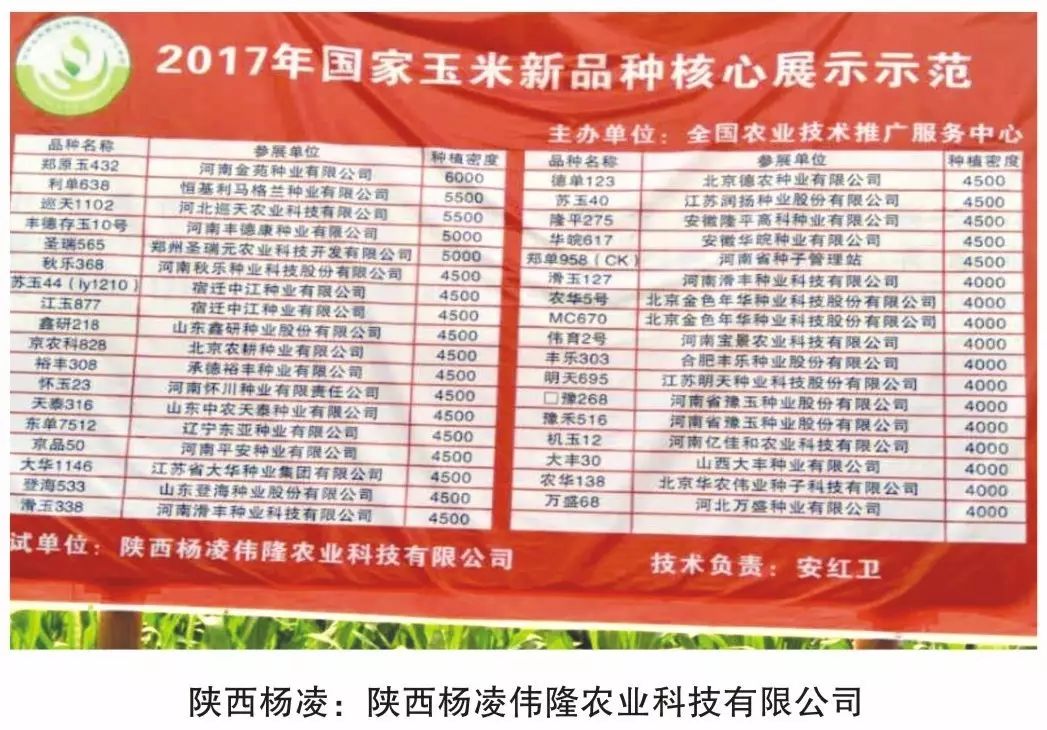 2017年国家玉米新品种核心展示示范
主办单位：全国农业技术推广服务中心
品种名称 参展单位 种植密度
郑原玉432 河南金苑种业有限公司 6000
利单638 恒基利马格兰种业有限公司 5500
巡天1102 河北巡天农业科技有限公司 5500
丰德存玉10号 河南丰德康种业有限公司 5000
圣瑞565 郑州圣瑞元农业科技开发有限公司 5000
秋乐368 河南秋乐种业科技股份有限公司 4500
苏玉44（ly1210） 宿迁中江种业有限公司 4500
江玉877 宿迁中江种业有限公司 4500
鑫研218 山东鑫研种业股份有限公司 4500
京农科828 北京农耕种业有限公司 4500
裕丰308 承德裕丰种业有限公司 4500
怀玉23 河南怀川种业有限责任公司 4500
天泰316 山东中农天泰种业有限公司 4500
东单7512 辽宁东亚种业有限公司 4500
京品50 河南平安种业有限公司 4500
大华1146 江苏省大华种业集团有限公司 4500
登海533 山东登海种业股份有限公司 4500
滑玉338 河南滑丰种业科技有限公司 4500
品种名称 参展单位 种植密度
德单123 北京德农种业有限公司 4500
苏玉40 江苏润扬种业股份有限公司 4500
隆平275 安徽隆平高科种业有限公司 4500
华皖617 安徽华皖种业有限公司 4500
郑单958（CK） 河南省种子管理站 4500
滑玉127 河南滑丰种业科技有限公司 4000
农华5号 北京金色年华种业科技股份有限公司 4000
MC670 北京金色年华种业科技股份有限公司 4000
伟育2号 河南宝景农业科技有限公司 4000
丰乐303 合肥丰乐种业股份有限公司 4000
明天695 江苏明天种业科技股份有限公司 4000
□豫268 河南省豫玉种业股份有限公司 4000
豫禾516 河南省豫玉种业股份有限公司 4000
机玉12 河南亿佳和农业科技有限公司 4000
大丰30 山西大丰种业有限公司 4000
农华138 北京华农伟业种子科技有限公司 4000
万盛68 河北万盛种业有限公司 4000
试单位：陕西杨凌伟隆农业科技有限公司
技术负责：安红卫
陕西杨凌：陕西杨凌伟隆农业科技有限公司